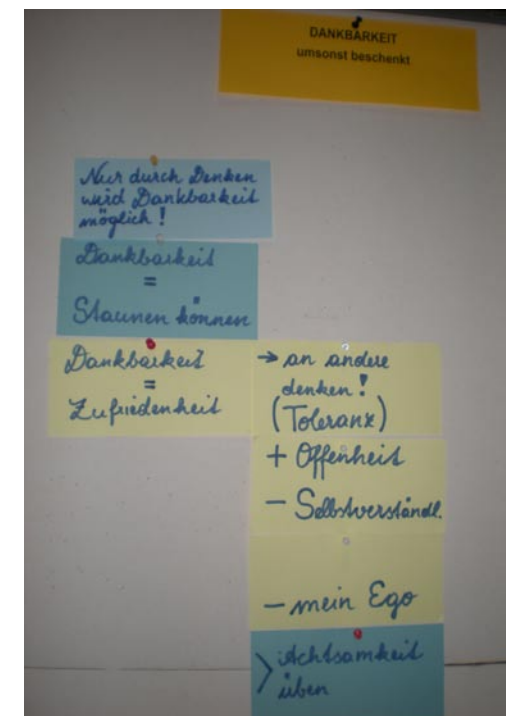 DANKBARKEIT
umsonst beschenkt
Nur durch Denken
wird Dankbarkeit
möglich!
Dankbarkeit
=
Staunen können
Dankbarkeit
=
Zufriedenheit
→ an andere
denken!
(Toleranz)
+ Offenheit
- Selbstverständl.
- mein Ego
> Achtsamkeit
üben